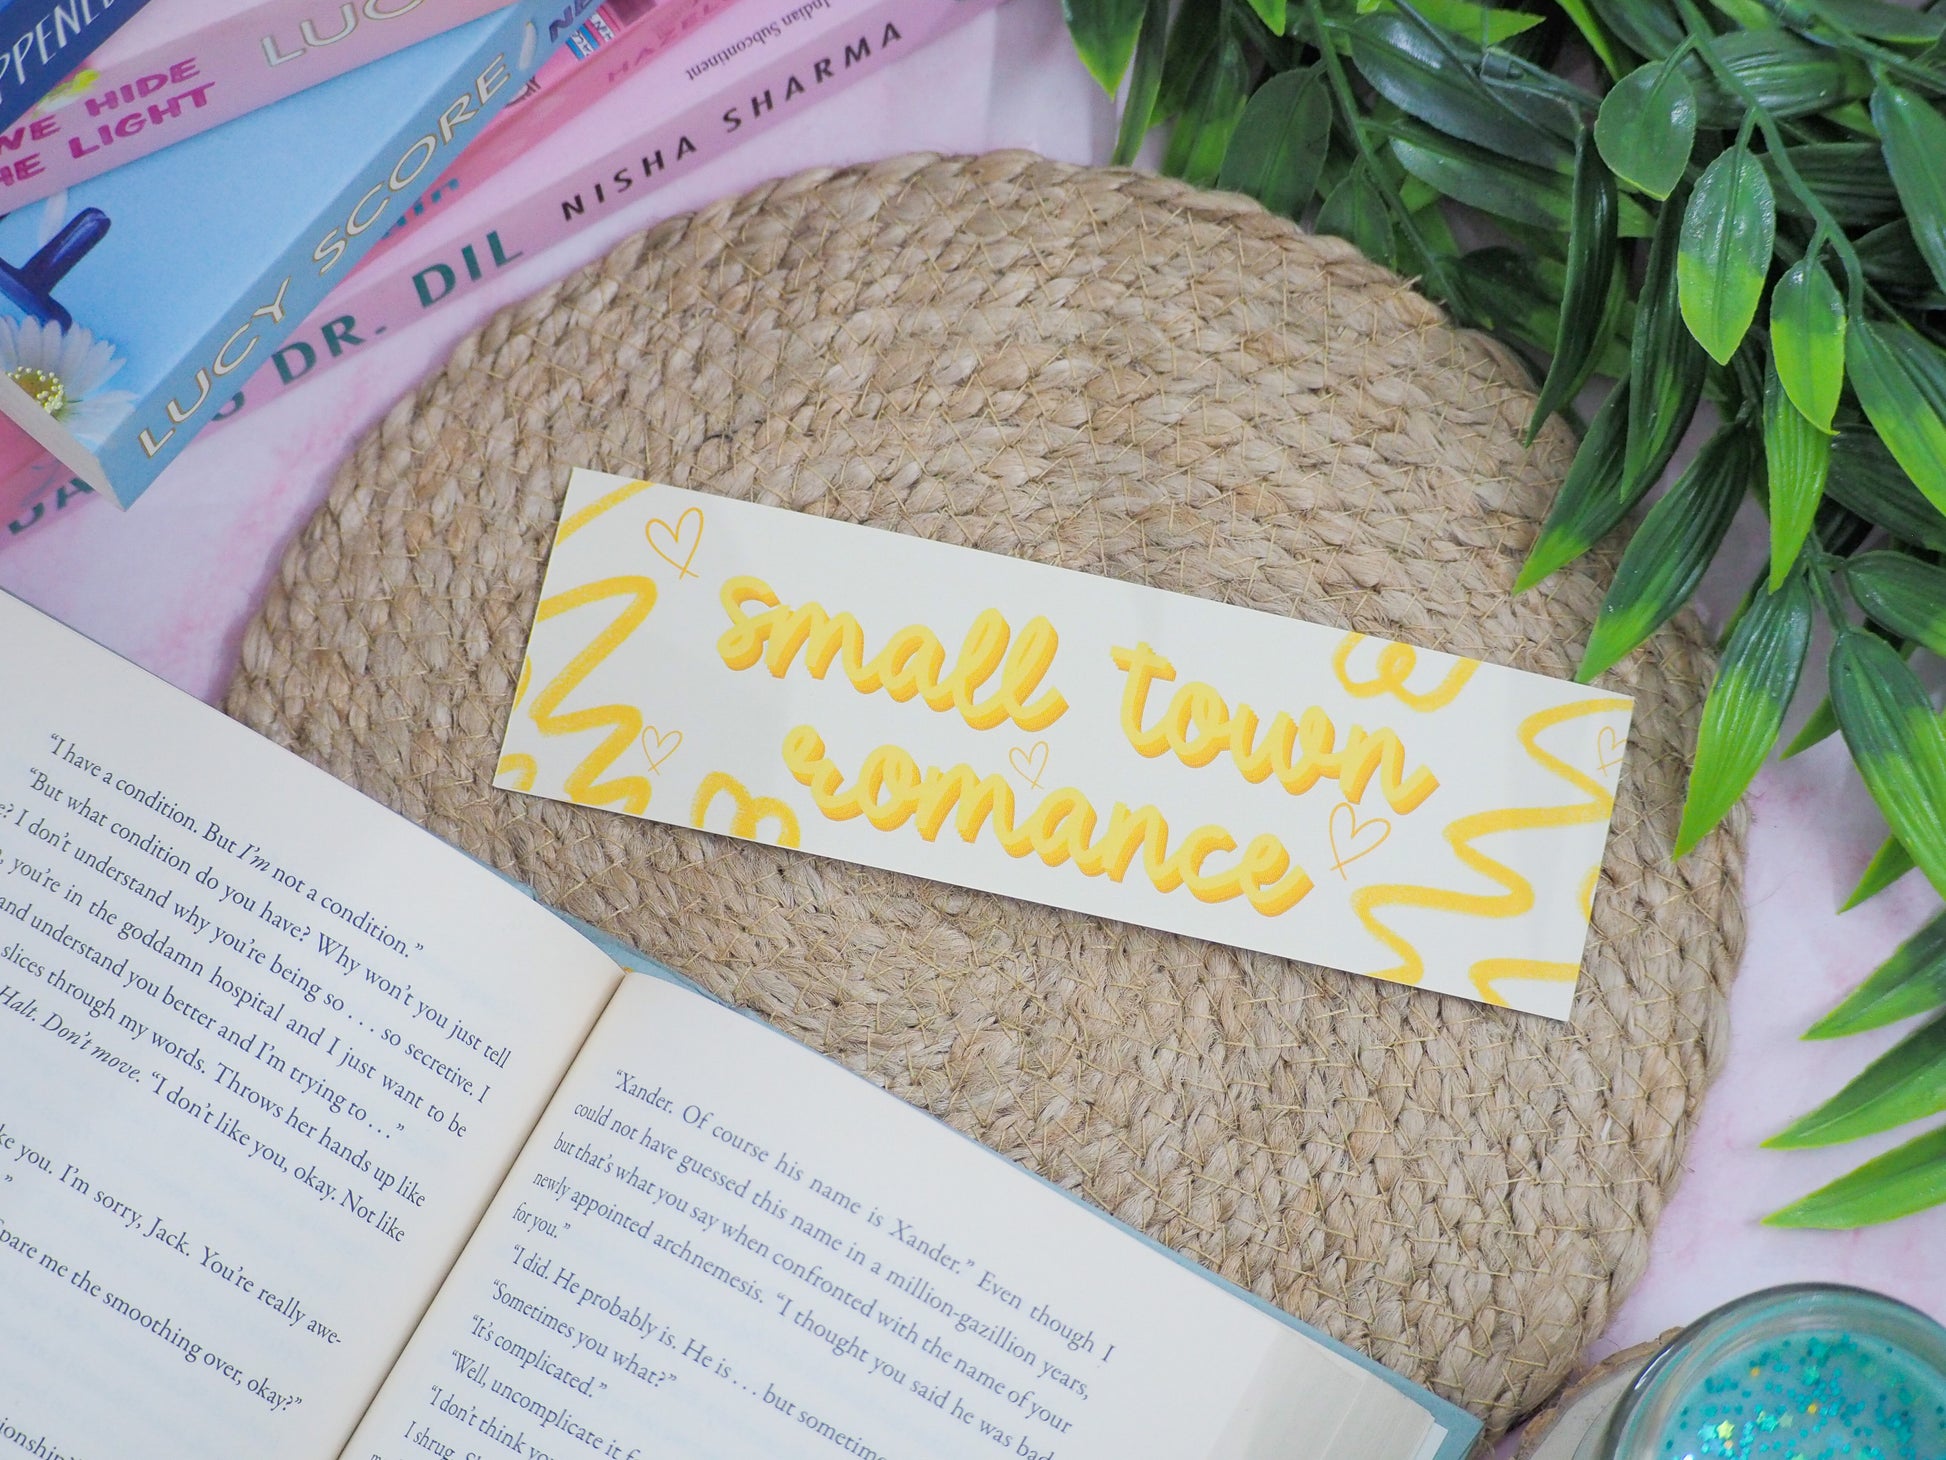 WE HIDE
THE LIGHT
LUCY SCORE
HAZEL
Indian Subcontinent
DR. DIL NISHA SHARMA
small town
romance
“I have a condition. But I’m not a condition.”
“But what condition do you have? Why won’t you just tell
? I don’t understand why you’re being so . . . so secretive. I
you’re in the goddamn hospital and I just want to be
and understand you better and I’m trying to . . .”
slices through my words. Throws her hands up like
Halt. Don’t move. “I don’t like you, okay. Not like
you. I’m sorry, Jack. You’re really awe-
me the smoothing over, okay?”
“Xander. Of course his name is Xander.” Even though I
could not have guessed this name in a million-gazillion years,
but that’s what you say when confronted with the name of your
newly appointed archnemesis. “I thought you said he was bad
for you.”
“I did. He probably is. He is . . . but sometimes
“Sometimes you what?”
“It’s complicated.”
“Well, uncomplicate it
“I don’t think
I shrug.